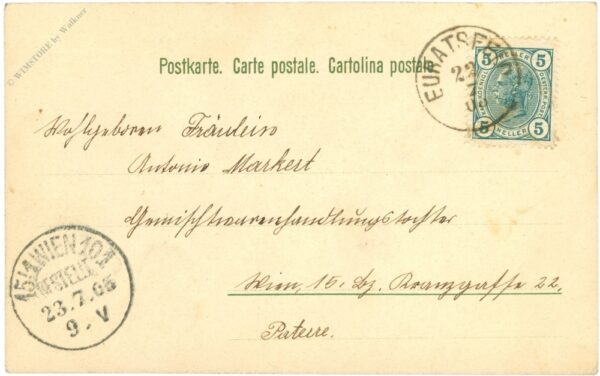 © WIMSTORE by Walkner
Postkarte. Carte postale. Cartolina postale.
EURATSFE
22
5 HELLER 5
5 HELLER 5
Wohlgeboren Fräulein
Antonie Markert
Gemischtwarenhandlungstochter
Wien, 15. Bz. Kranzgasse 22.
Parterre.
15/1 WIEN 101
BESTELLT
23.7.06
9. V